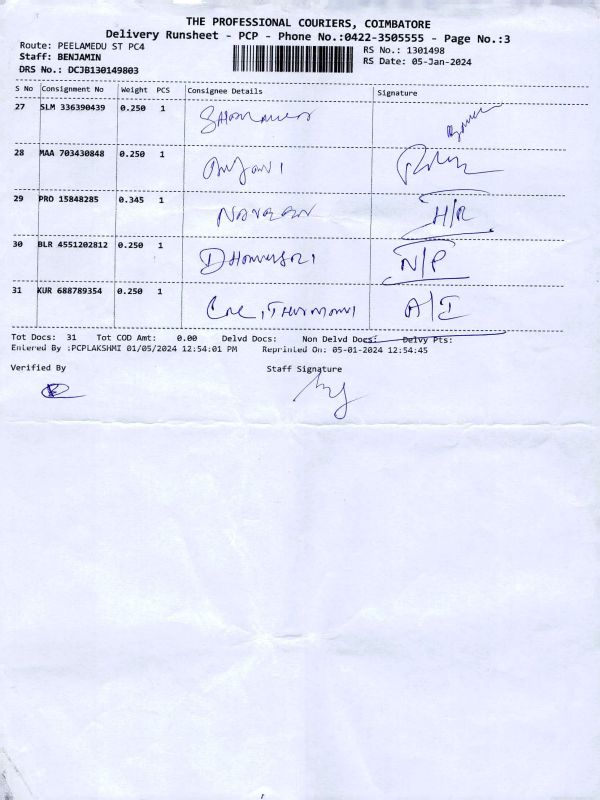 THE PROFESSIONAL COURIERS, COIMBATORE
Delivery Runsheet - PCP - Phone No.:0422-3505555 - Page No.:3
Route: PEELAMEDU ST PC4
Staff: BENJAMIN
DRS No.: DCJB130149803
RS No.: 1301498
RS Date: 05-Jan-2024
S No Consignment No Weight PCS Consignee Details Signature
27 SLM 336390439 0.250 1
28 MAA 703430848 0.250 1
29 PRO 15848285 0.345 1 H/R
30 BLR 4551202812 0.250 1 N/P
31 KUR 688789354 0.250 1 A/I
Tot Docs: 31 Tot COD Amt: 0.00 Delvd Docs: Non Delvd Docs: Delvy Pts:
Entered By :PCPLAKSHMI 01/05/2024 12:54:01 PM Reprinted On: 05-01-2024 12:54:45
Verified By Staff Signature